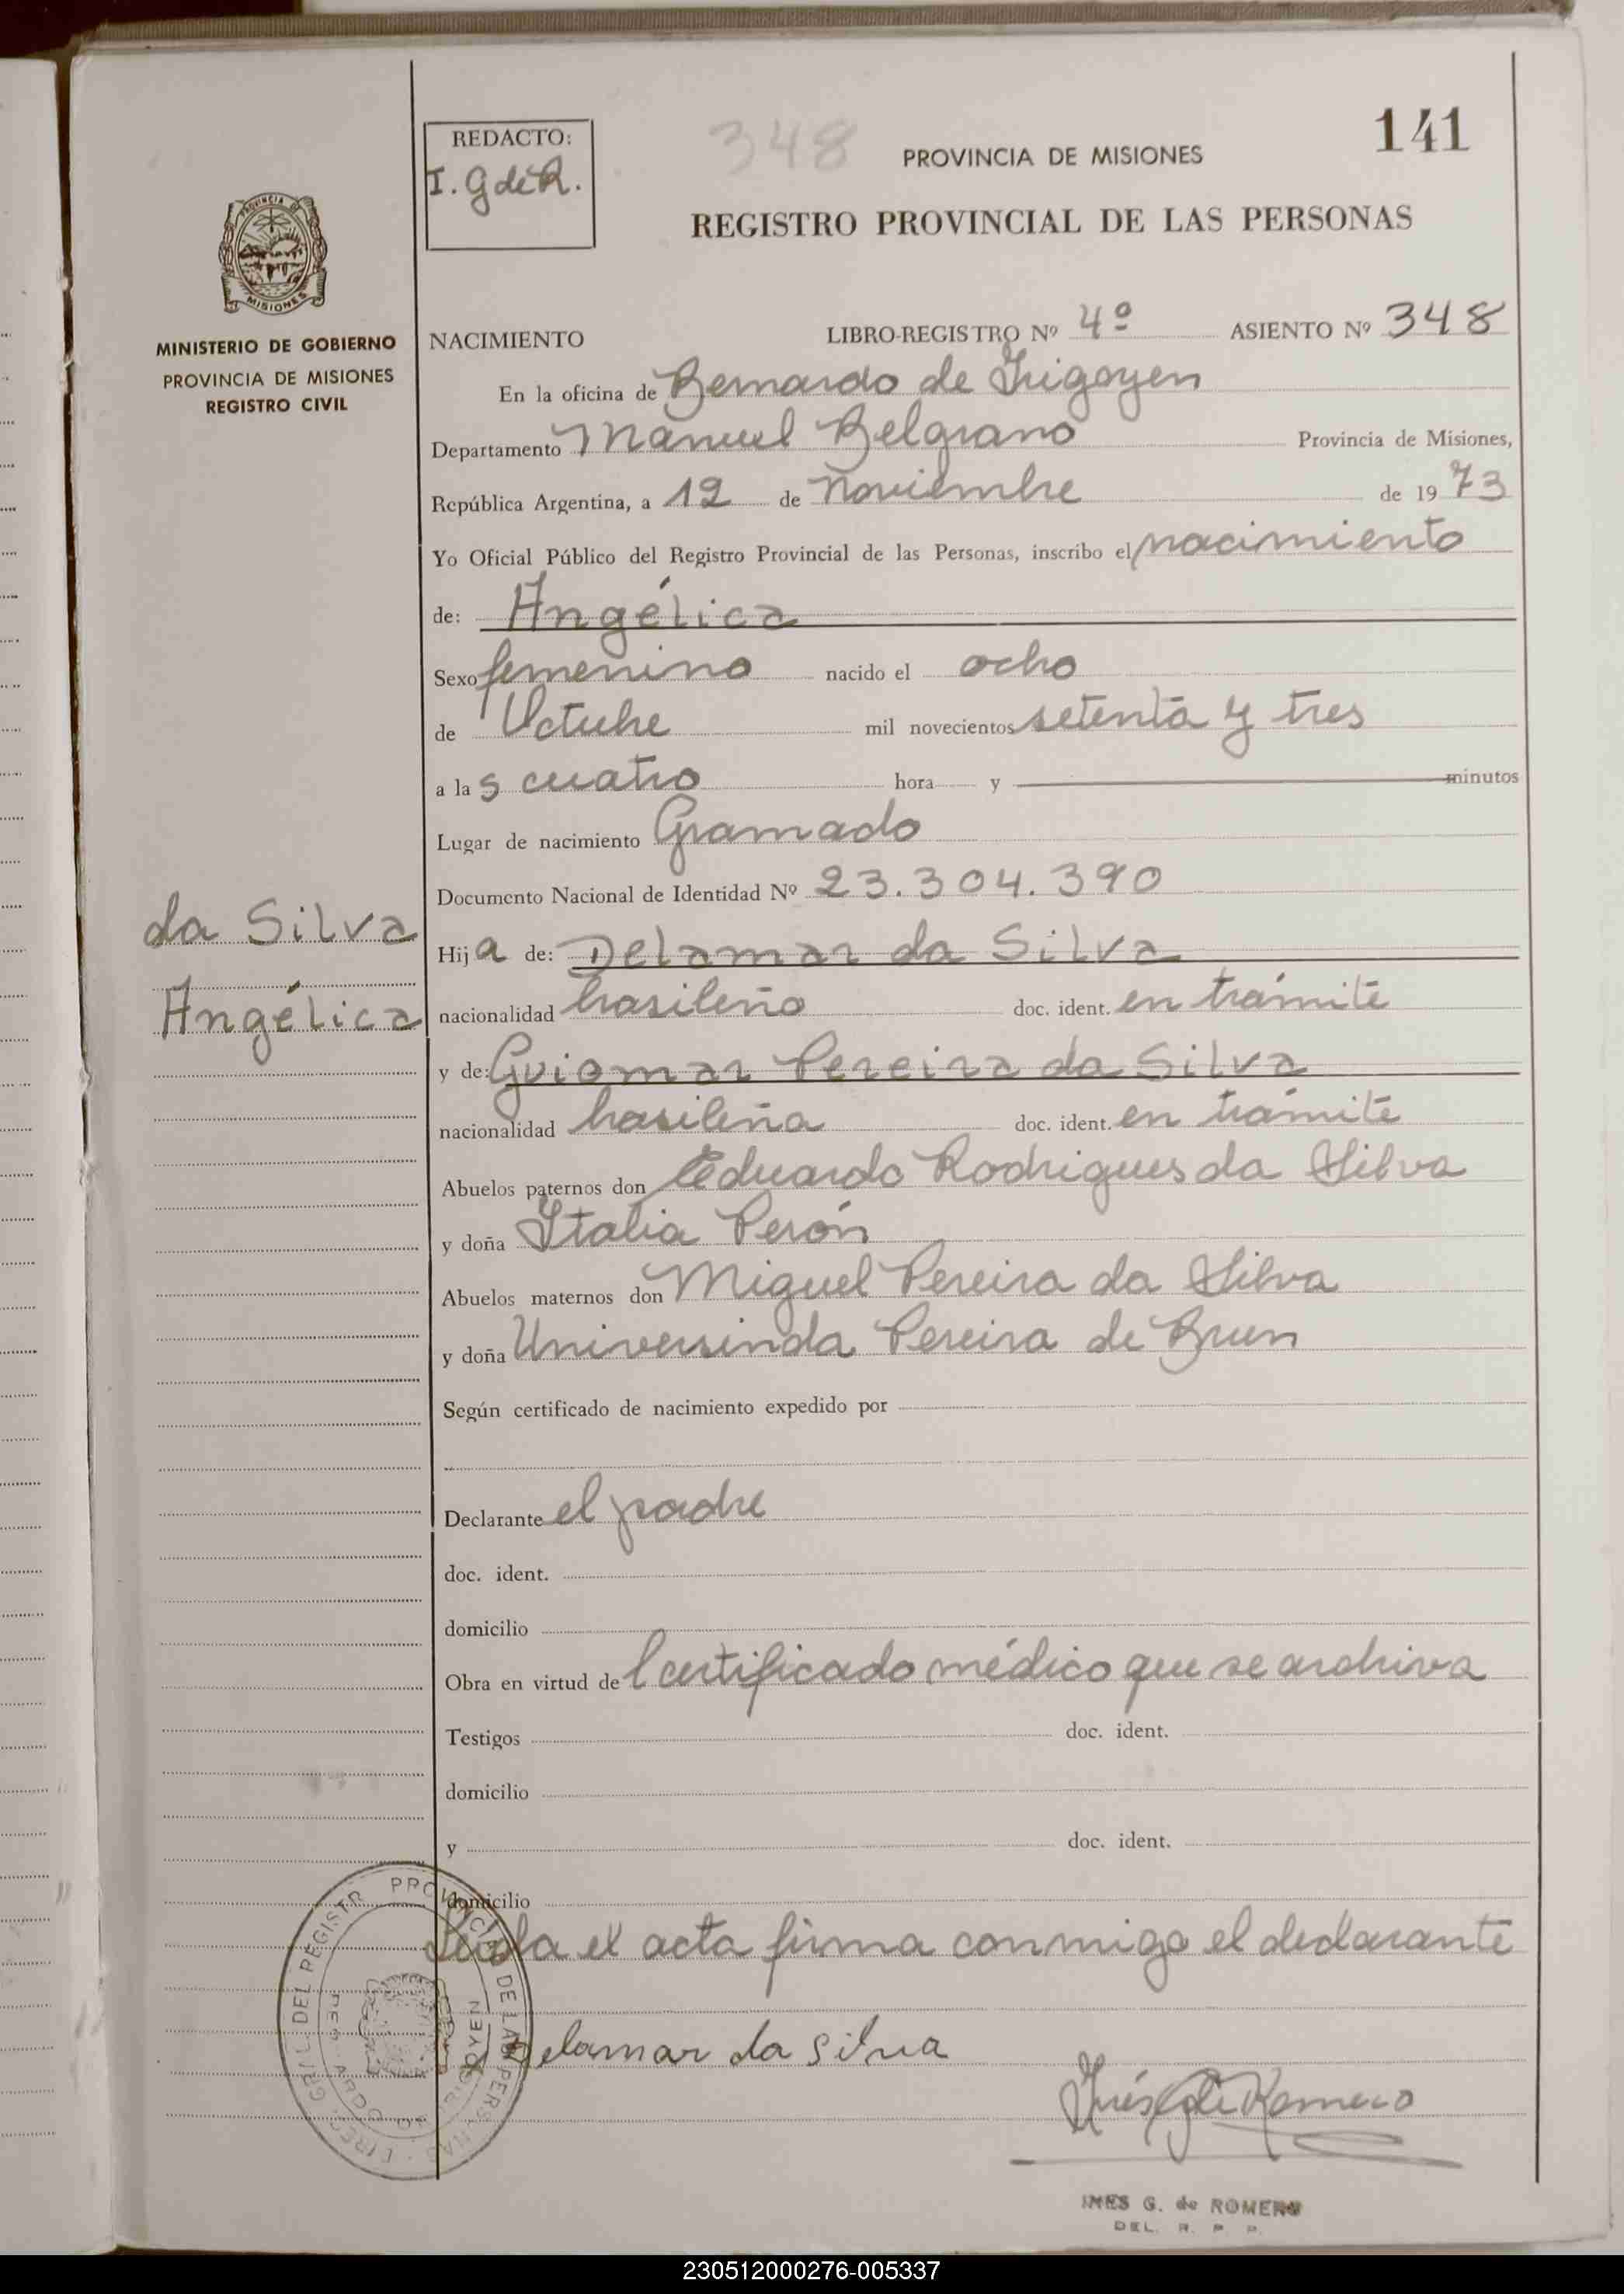 REDACTO:
I. G de R.
348
PROVINCIA DE MISIONES
141
REGISTRO PROVINCIAL DE LAS PERSONAS
PROVINCIA DE
MISIONES
MINISTERIO DE GOBIERNO
PROVINCIA DE MISIONES
REGISTRO CIVIL
NACIMIENTO LIBRO-REGISTRO Nº 4º ASIENTO Nº 348
En la oficina de Bernardo de Irigoyen
Departamento Manuel Belgrano Provincia de Misiones,
República Argentina, a 12 de noviembre de 1973
Yo Oficial Público del Registro Provincial de las Personas, inscribo el nacimiento
de: Angélica
Sexo femenino nacido el ocho
de Octubre mil novecientos setenta y tres
a las cuatro hora y minutos
Lugar de nacimiento Gramado
Documento Nacional de Identidad Nº 23.304.390
da Silva
Angélica
Hija de: Delamar da Silva
nacionalidad brasileño doc. ident. en trámite
y de: Guiomar Pereira da Silva
nacionalidad brasileña doc. ident. en trámite
Abuelos paternos don Eduardo Rodrigues da Silva
y doña Italia Perón
Abuelos maternos don Miguel Pereira da Silva
y doña Universinda Pereira de Brun
Según certificado de nacimiento expedido por
Declarante el padre
doc. ident.
domicilio
Obra en virtud de Certificado médico que se archiva
Testigos doc. ident.
domicilio
y doc. ident.
domicilio
Leída el acta firma conmigo el declarante
Delamar da Silva
Inés G de Romero
INES G. de ROMERO
DEL. R. P. P.
230512000276-005337